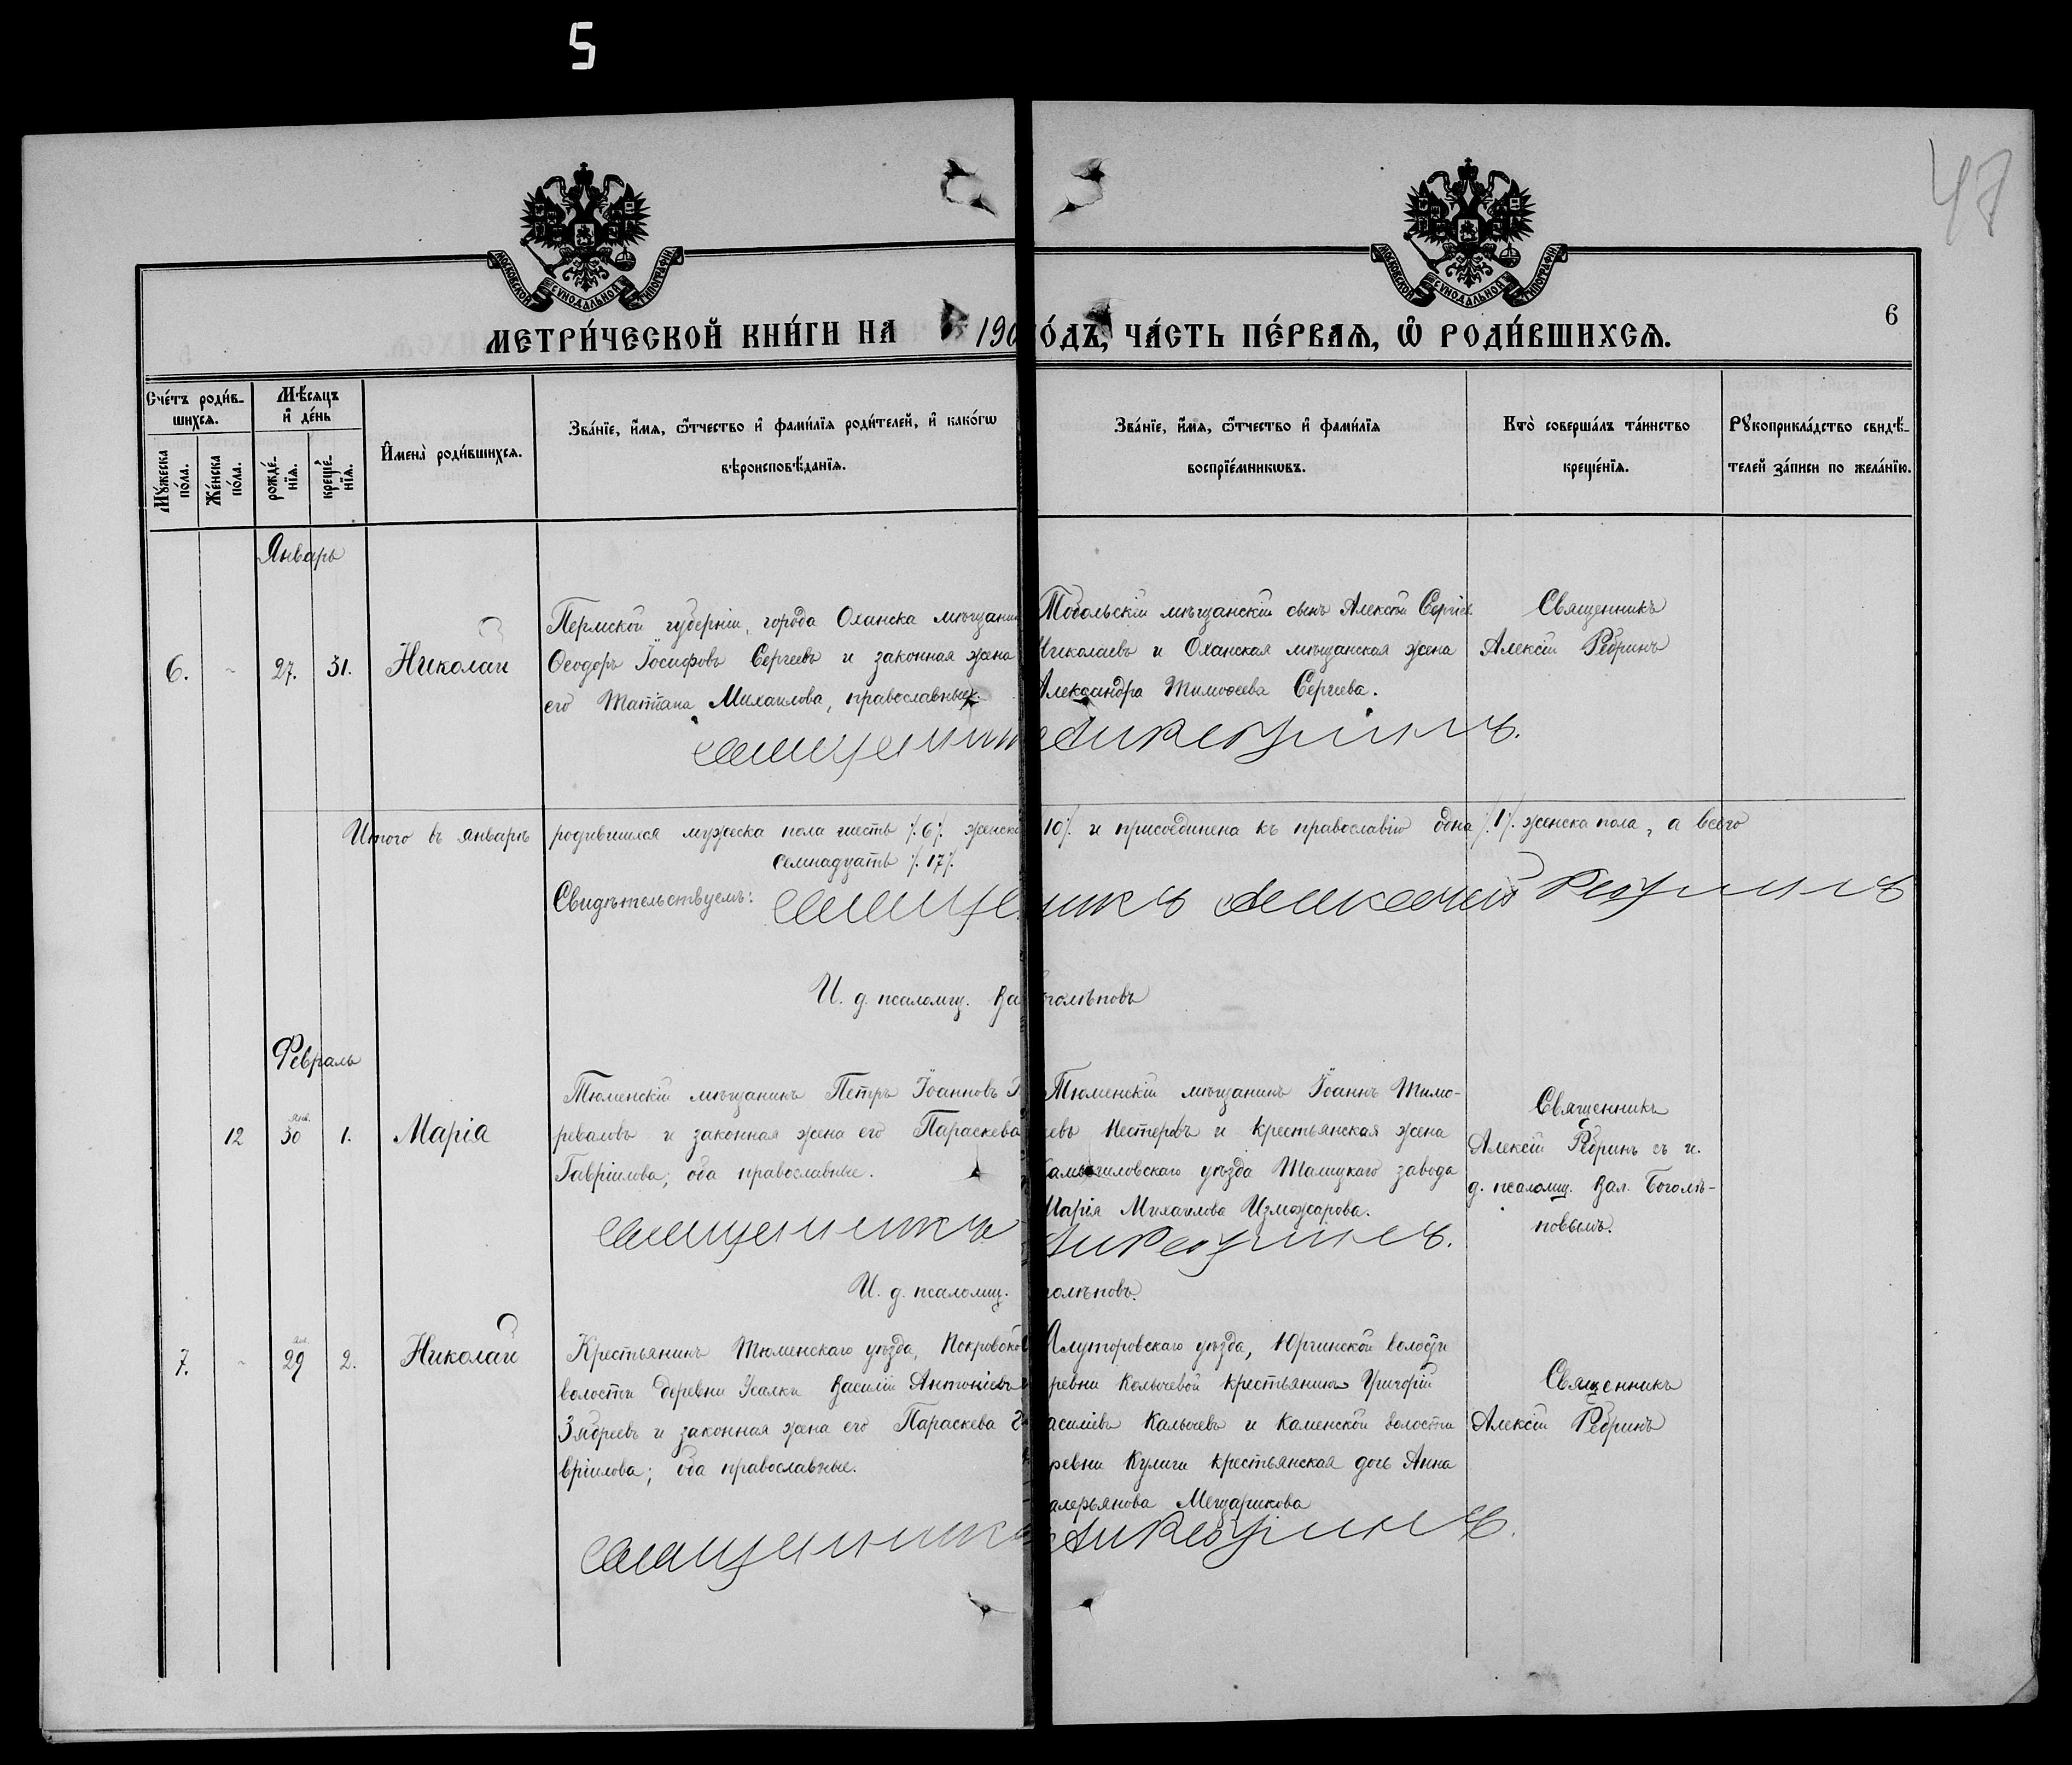 5
47
МОСКОВСКОЙ СѴНОДАЛЬНОЙ ТИПОГРАФІИ
МОСКОВСКОЙ СѴНОДАЛЬНОЙ ТИПОГРАФІИ
6
МЕТРИ́ЧЕСКОЙ КНИ́ГИ НА 190
О́ДЪ, ЧА́СТЬ ПЕ́РВАѦ, Ѽ РОДИ́ВШИХСѦ.
Сче́тъ роди́в-
шихсѧ.
Мꙋ́жеска по́ла.
Же́нска по́ла.
Мѣ́сѧцъ
и҆ де́нь
рожде́-нїѧ.
креще́-нїѧ.
И҆мена̀ роди́вшихсѧ.
Зва́нїе, и҆́мѧ, ѻ҆́тчество и҆ фами́лїѧ роди́телей, и҆ како́гѡ
вѣроисповѣ́данїѧ.
Зва́нїе, и҆́мѧ, ѻ҆́тчество и҆ фами́лїѧ
воспрїе́мникѡвъ.
Кто̀ соверша́лъ та́инство
креще́нїѧ.
Рꙋкоприкла́дство свидѣ́-
телей за́писи по жела́нїю.
Январь
6. - 27. 31. Николай
Пермской губерніи, города Оханска мѣщанин
Ѳеодоръ Іосифовъ Сергеевъ и законная жена
его Татіана Михаилова, православные.
Тобольскій мѣщанскій сынъ Алексѣй Сергіев
Николаевъ и Оханская мѣщанская жена
Александра Тимоѳеева Сергеева.
Священникъ
Алексій Ребринъ
Священник Ал. Ребринъ.
Итого въ январѣ родившихся мужеска пола шесть /.6/. женска 10/. и присоединена къ православію одна /.1/. женска пола, а всего
семнадцать /.17/.
Свидѣтельствуемъ: Священникъ Алексій Ребринъ
И. д. псаломщ. Ва голѣповъ
Февраль
12 янв. 30 1. Марія
Тюменскій мѣщанинъ Петръ Іоанновъ П
реваловъ и законная жена его Параскева
Гавріилова; оба православные.
Тюменскій мѣщанинъ Іоаннъ Тимо-
еевъ Нестеровъ и крестьянская жена
Камышловскаго уѣзда Талицкаго завода
Марія Михаилова Изможарова.
Священникъ
Алексій Ребринъ съ и.
д. псаломщ. Вал. Боголѣ-
повымъ.
Священникъ Ал. Ребринъ.
И. д. псаломщ. голѣповъ.
7. - янв. 29 2. Николай
Крестьянинъ Тюменскаго уѣзда, Покровской
волости деревни Усалки Василій Антоніевъ
Зябревъ и законная жена его Параскева Га
вріилова; оба православные.
Ялуторовскаго уѣзда, Юргинской волости
ревни Колычевой крестьянинъ Григорій
асиліевъ Калычевъ и Каменской волости
ревни Кулиги крестьянская дочь Анна
алерьянова Мещарикова
Священникъ
Алексій Ребринъ
Священникъ Ал. Ребринъ.